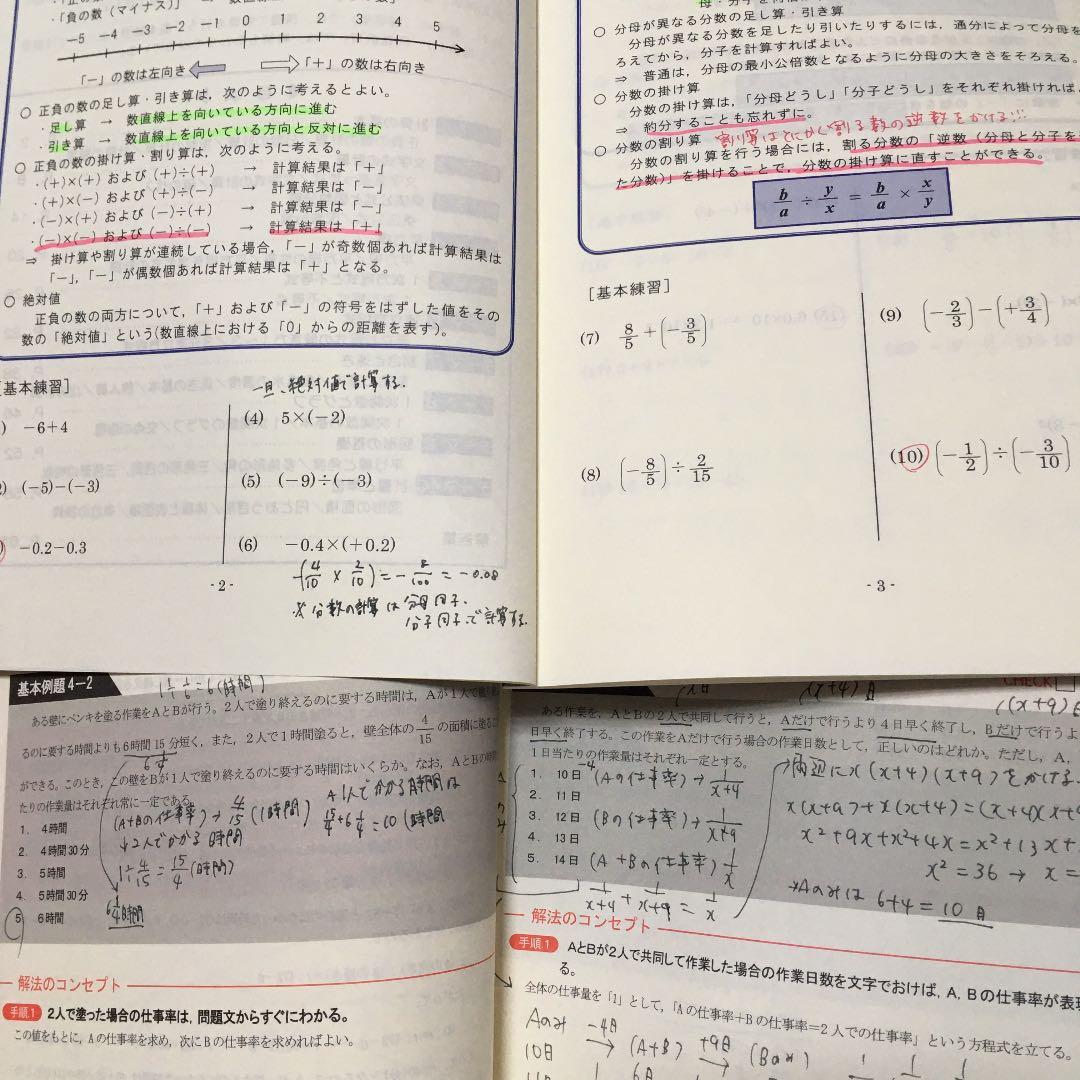 「負の数（マイナス）」 →
−5 −4 −3 −2 −1 0 1 2 3 4 5
「−」の数は左向き 「＋」の数は右向き
○ 正負の数の足し算・引き算は，次のように考えるとよい。
・足し算 → 数直線上を向いている方向に進む
・引き算 → 数直線上を向いている方向と反対に進む
○ 正負の数の掛け算・割り算は，次のように考える。
・(＋)×(＋) および (＋)÷(＋) → 計算結果は「＋」
・(＋)×(−) および (＋)÷(−) → 計算結果は「−」
・(−)×(＋) および (−)÷(＋) → 計算結果は「−」
・(−)×(−) および (−)÷(−) → 計算結果は「＋」
⇒ 掛け算や割り算が連続している場合，「−」が奇数個あれば計算結果は
「−」，「−」が偶数個あれば計算結果は「＋」となる。
○ 絶対値
正負の数の両方について，「＋」および「−」の符号をはずした値をその
数の「絶対値」という(数直線上における「0」からの距離を表す)。
[基本練習]
一旦、絶対値で計算する．
−6+4
(−5)−(−3)
−0.2−0.3
(4) 5×(−2)
(5) (−9)÷(−3)
(6) −0.4×(+0.2)
−(4/10 × 2/10) = − 8/100 = −0.08
※分数の計算は分母同子．
分子同子で計算する．
- 2 -
○ 分母が異なる分数の足し算・引き算
分母が異なる分数を足したり引いたりするには，通分によって分母を
ろえてから，分子を計算すればよい。
⇒ 普通は，分母の最小公倍数となるように分母の大きさをそろえる。
○ 分数の掛け算
分数の掛け算は，「分母どうし」「分子どうし」をそれぞれ掛ければ，
⇒ 約分することも忘れずに。
○ 分数の割り算 割り算はとにかく割る数の逆数をかける!!!
分数の割り算を行う場合には，割る分数の「逆数（分母と分子を
た分数)」を掛けることで，分数の掛け算に直すことができる。
b/a ÷ y/x = b/a × x/y
[基本練習]
(7) 8/5 + (−3/5)
(8) (−8/5) ÷ 2/15
(9) (−2/3) − (+3/4)
(10) (−1/2) ÷ (−3/10)
- 3 -
基本例題4−2
ある壁にペンキを塗る作業をAとBが行う。2人で塗り終えるのに要する時間は，Aが1人で
るのに要する時間よりも6時間15分短く，また，2人で1時間塗ると，壁全体の 4/15 の面積に塗る
ができる。このとき，この壁をBが1人で塗り終えるのに要する時間はいくらか。なお，AとBの
たりの作業量はそれぞれ常に一定である。
1. 4時間
2. 4時間30分
3. 5時間
4. 5時間30分
5. 6時間
(A+Bの仕事率)→ 4/15 (1時間)
↓2人でかかる時間
1÷4/15 = 15/4 (時間)
6 1/4時間
A 1人でかかる時間は
15/4 + 6 1/4 = 10 (時間
解法のコンセプト
手順.1 2人で塗った場合の仕事率は，問題文からすぐにわかる。
この値をもとに，Aの仕事率を求め，次にBの仕事率を求めればよい。
CHECK
(x+4)日
(x+9)日
ある作業を，AとBの2人で共同して行うと，Aだけで行うより4日早く終了し，Bだけで行うよ
日早く終了する。この作業をAだけで行う場合の作業日数として，正しいのはどれか。ただし，A，
1日当たりの作業量はそれぞれ一定とする。
1. 10日
2. 11日
3. 12日
4. 13日
5. 14日
(Aの仕事率)→ 1/x+4
(Bの仕事率)→ 1/x+9
(A+Bの仕事率) 1/x
1/x+4 + 1/x+9 = 1/x
→両辺にx(x+4)(x+9)をかける
x(x+9)+x(x+4)=(x+4)(x+9
x²+9x+x²+4x=x²+13x+
x²=36 → x=
→Aのみは 6+4=10日
解法のコンセプト
手順.1 AとBが2人で共同して作業した場合の作業日数を文字でおけば，A，Bの仕事率が表現
る。
全体の仕事量を「1」として，「Aの仕事率＋Bの仕事率＝2人での仕事率」という方程式を立てる。
Aのみ −4日 (A+B) +9日 (Bのみ)
10日 6日